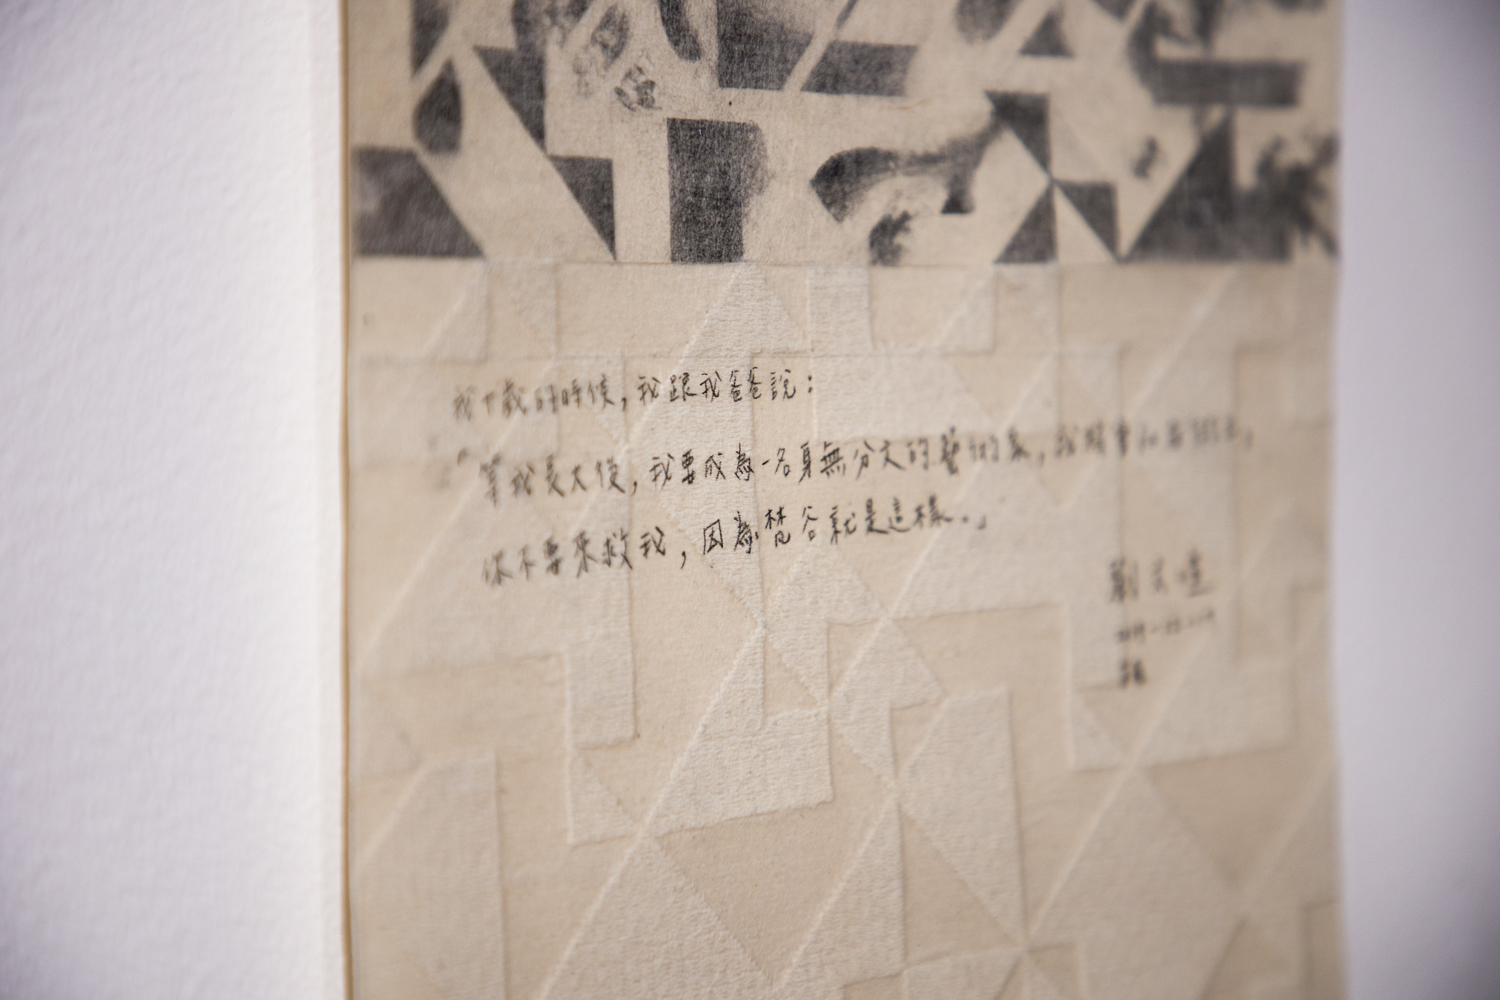 我十歲的時候，我跟我爸爸說：
「等我長大後，我要成為一名身無分文的藝術家，我將會
你不要來救我，因為梵谷就是這樣。」
劉